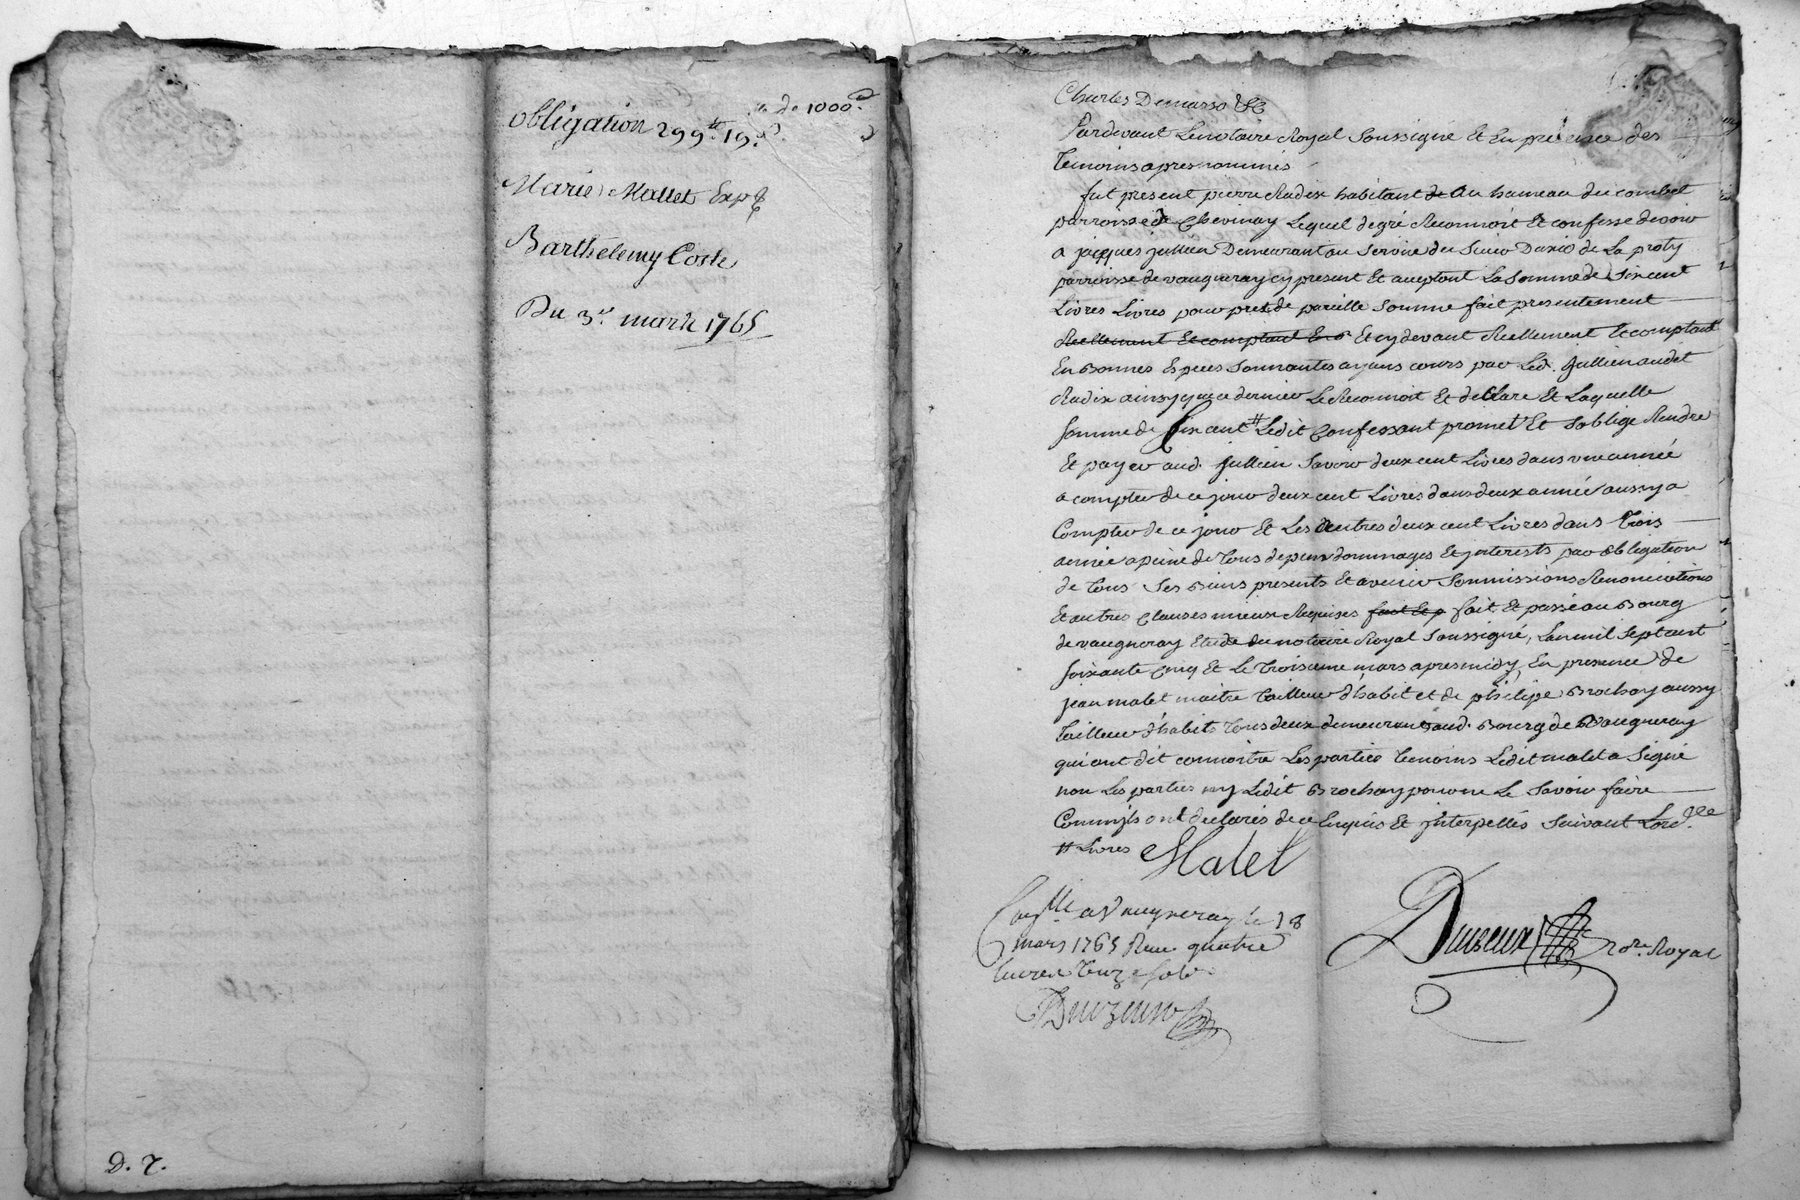 de 1000
obligation 299ᵗᵗ 19ˢ
Marie Mallet Exp
Barthelemy Coste
Du 3ᵉ mars 1765
D. 7.
Charles Demarso &c
Pardevant Le notaire Royal Soussigné Et En presence des
temoins apres nommés
fut present pierre Radix habitant de Au hameau du combet
parroisse de Chevinay Lequel de gré Reconnoit Et confesse devoir
a jacques jullien Demeurant au Service du Sieur David de La proty
parroisse de vaugneray cy present Et acceptant La Somme de Six cent
Livres Livres pour prest de pareille Somme fait presentement
Reellement Et comptant En Et cy devant Reellement Et comptant
En Bonnes Especes Sonnantes ayans cours par Led. Jullien audit
Radix ainsy que ce dernier Le Reconnoit Et declare Et Laquelle
Somme de Six cent ᵗᵗ Ledit Confessant promet Et Soblige Rendre
Et payer aud. Jullien Savoir deux cent Livres dans une année
a compter de ce jour deux cent Livres dans deux année aussy a
Compter de ce jour Et Les autres deux cent Livres dans trois
année a peine de tous depens dommages Et jnterests par obligation
de tous Ses Biens presents Et avenir Sommissions Renonciations
Et autres Clauses mieux Requises fait Et p fait Et passé au Bourg
de vaugneray Etude du notaire Royal Soussigné, L'an mil Sept cent
Soixante cinq Et Le troisieme mars apres midy, En presence de
jean malet maitre tailleur d'habit et de philipe Brochay aussy
tailleur d'habits tous deux demeurant aud. Bourg de Vaugneray
qui ont dit connoitre Les parties temoins Ledit malet a Signé
non Les parties ny Ledit Brochay pour ne Le Savoir faire
Comm'jls ont declarés de ce Enquis Et jnterpellés Suivant L'ord.ᶜᵉ
ᵗᵗ Livres Malet
a Vaugneray le 18
mars 1765 Reçu quatre
Livres sols
not.ʳᵉ Royal